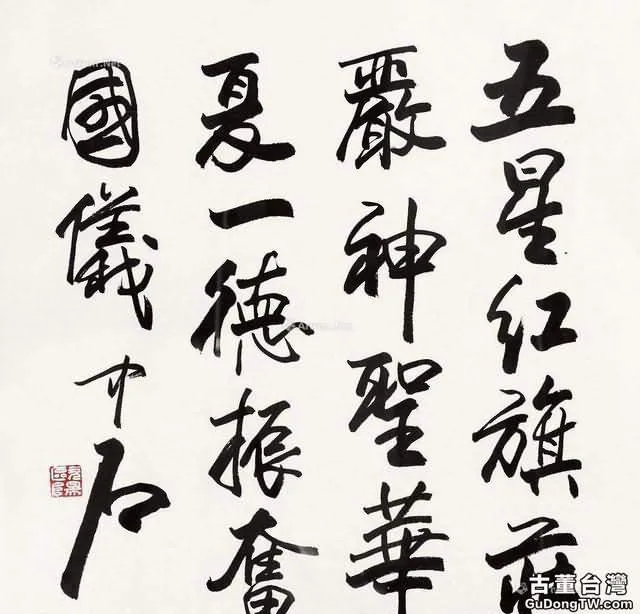 五星红旗莊
嚴神聖華
夏一德振奮
國儀
中石
古董台灣
GuDongTW.com